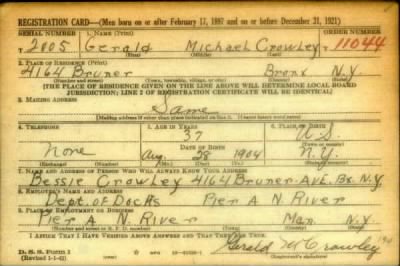 REGISTRATION CARD—(Men born on or after February 17, 1897 and on or before December 31, 1921)
SERIAL NUMBER 1. NAME (Print) ORDER NUMBER
T 2005 Gerald Michael Crowley 11044
2. PLACE OF RESIDENCE (Print)
4164 Bruner Bronx N.Y.
(Number and street) (Town, township, village, or city) (County) (State)
[THE PLACE OF RESIDENCE GIVEN ON THE LINE ABOVE WILL DETERMINE LOCAL BOARD
JURISDICTION; LINE 2 OF REGISTRATION CERTIFICATE WILL BE IDENTICAL]
3. MAILING ADDRESS
Same
[Mailing address if other than place indicated on line 2. If same insert word same]
4. TELEPHONE 5. AGE IN YEARS 6. PLACE OF BIRTH
37 U.S.
None DATE OF BIRTH (Town or county)
Aug. 28 1904 N.Y.
(Exchange) (Number) (Mo.) (Day) (Yr.) (State or country)
7. NAME AND ADDRESS OF PERSON WHO WILL ALWAYS KNOW YOUR ADDRESS
Bessie Crowley 4164 Bruner-Ave. Bx. N.Y.
8. EMPLOYER'S NAME AND ADDRESS
Dept. of Docks Pier A N. River
9. PLACE OF EMPLOYMENT OR BUSINESS
Pier A N. River Man. N.Y.
(Number and street or R. F. D. number) (Town) (County) (State)
I AFFIRM THAT I HAVE VERIFIED ABOVE ANSWERS AND THAT THEY ARE TRUE.
D. S. S. Form 1
(Revised 1-1-42) GPO Gerald M Crowley
(Registrant's signature)